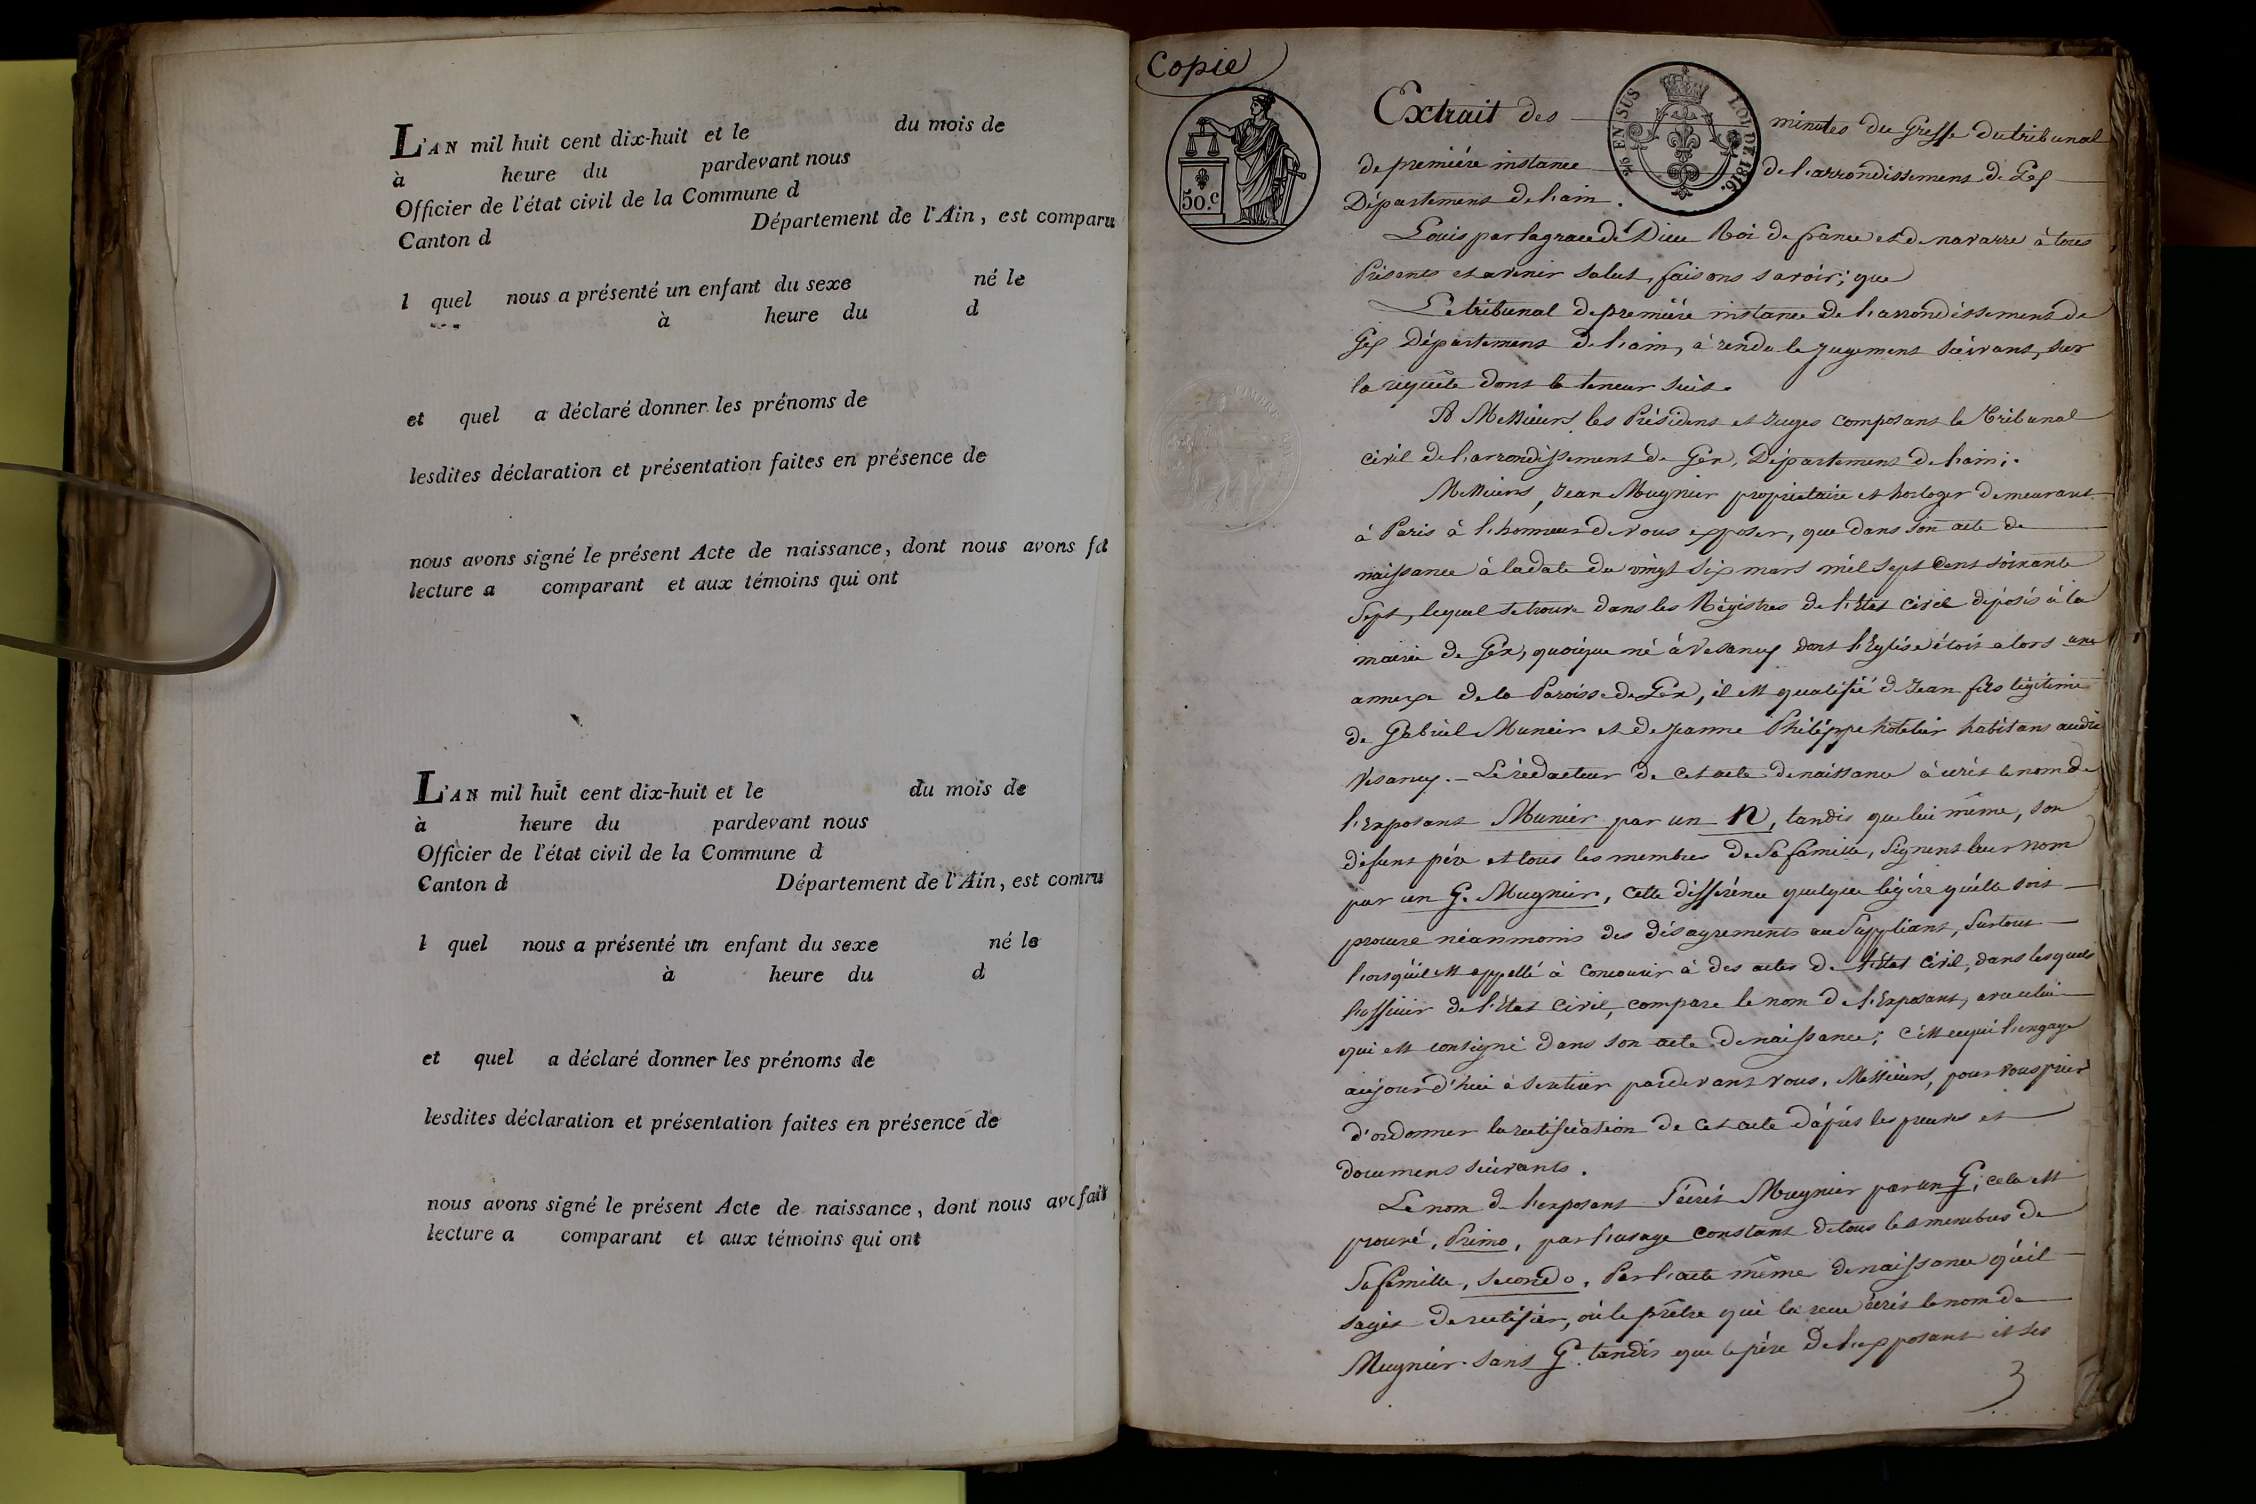 L'AN mil huit cent dix-huit et le du mois de
à heure du pardevant nous
Officier de l'état civil de la Commune d
Canton d Département de l'Ain, est comparu
l quel nous a présenté un enfant du sexe né le
à heure du d
et quel a déclaré donner les prénoms de
lesdites déclaration et présentation faites en présence de
nous avons signé le présent Acte de naissance, dont nous avons fa
lecture a comparant et aux témoins qui ont
L'AN mil huit cent dix-huit et le du mois de
à heure du pardevant nous
Officier de l'état civil de la Commune d
Canton d Département de l'Ain, est comru
l quel nous a présenté un enfant du sexe né le
à heure du d
et quel a déclaré donner les prénoms de
lesdites déclaration et présentation faites en présence de
nous avons signé le présent Acte de naissance, dont nous avo fait
lecture a comparant et aux témoins qui ont
Copie
50.c
EN SUS LOI DE 1816.
Extrait des minutes du Greffe du tribunal
de premiére instance de l'arrondissement de Gex
Département de l'ain.
Louis par la grace de Dieu Roi de france et de navarre à tous
Présents et avenir salut, faisons savoir; que
Le tribunal de premiére instance de l'arrondissement de
Gex Département de l'ain, à rendu le jugement suivant, sur
la requête dont la teneur suit.
A Messieurs les Président et Juges composant le Tribunal
civil de l'arrondissement de Gex, Département de l'ain;
Messieurs, Jean Mugnier propriétaire et horloger demeurant
à Paris à l'honneur de vous exposer, que dans son acte de
naissance à la date du vingt six mars mil sept cent soixante
Sept, lequel se trouve dans les Régistres de l'Etat civil déposés à la
mairie de Gex, quoique né à Vesancy dont l'Eglise étoit alors une
annexe de la Paroisse de Gex, il est qualifié de Jean fils légitime
de Gabriel Muneir et de Jeanne Philippe hotelier habitans audit
Vesancy. - Le rédacteur de cet acte de naissance à écrit le nom de
l'exposant Munier par un N, tandis que lui même, son
défunt pére et tous les membres de sa famille, signent leur nom
par un G. Mugnier, cette différence quelque légére qu'elle soit
procure néanmoins des désagrements au Suppliant, surtout
lorsqu'il est appellé à concourir à des actes de l'Etat civil, dans lesquels
l'officier de l'Etat civil, compare le nom de l'Exposant, avec celui
qui est consigné dans son acte de naissance; c'est ce qui l'engage
aujourd'hui à se retirer pardevant vous, Messieurs, pour vous prier
d'ordonner la rectification de cet acte d'après les preuves et
documens suivants.
Le nom de l'exposant s'écrit Mugnier par un G; cela est
prouvé, Primo, par l'usage constant de tous les membres de
sa famille, secondo, Par l'acte même de naissance qu'il
sagit de rectifier, où le prêtre qui l'a reçu écrit le nom de
Mugnier sans G. tandis que le pére de l'exposant et ses
3